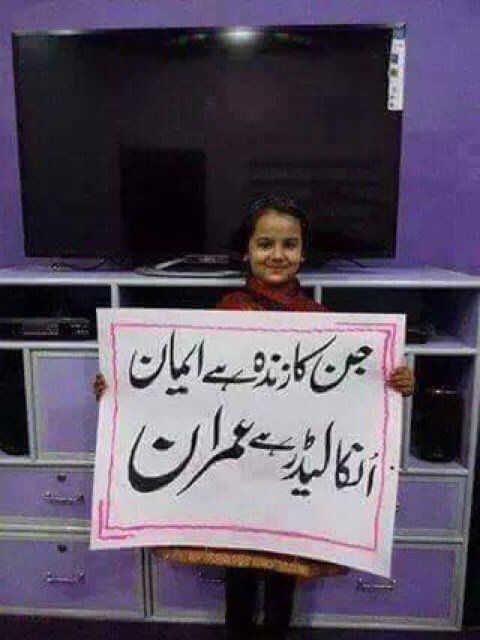 جن کا زندہ ہے ایمان
اُنکا لیڈر ہے عمران